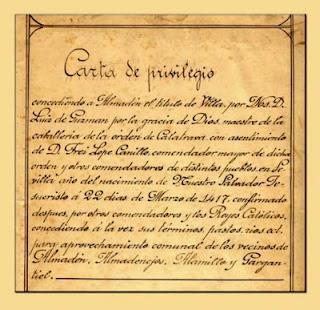 Carta de privilegio
concediendo á Almadén el título de Villa, por Nos. D.
Luis de Guzman por la gracia de Dios, maestre de la
caballeria de la orden de Calatrava, con asentimiento
de D. Frei Lope Canillo, comendador mayor de dicha
orden y otros comendadores de distintos pueblos, en Se-
villa año del nacimiento de Nuestro Salvador Je-
sucristo á 22 dias de Marzo de 1417, confirmado
despues, por otros comendadores y los Reyes Católicos,
concediendo á la vez sus términos, pastos, rios ect.
para aprovechamiento comunal de los vecinos de
Almadén, Almadenejos, Alamillo y Gargan-
tiel.